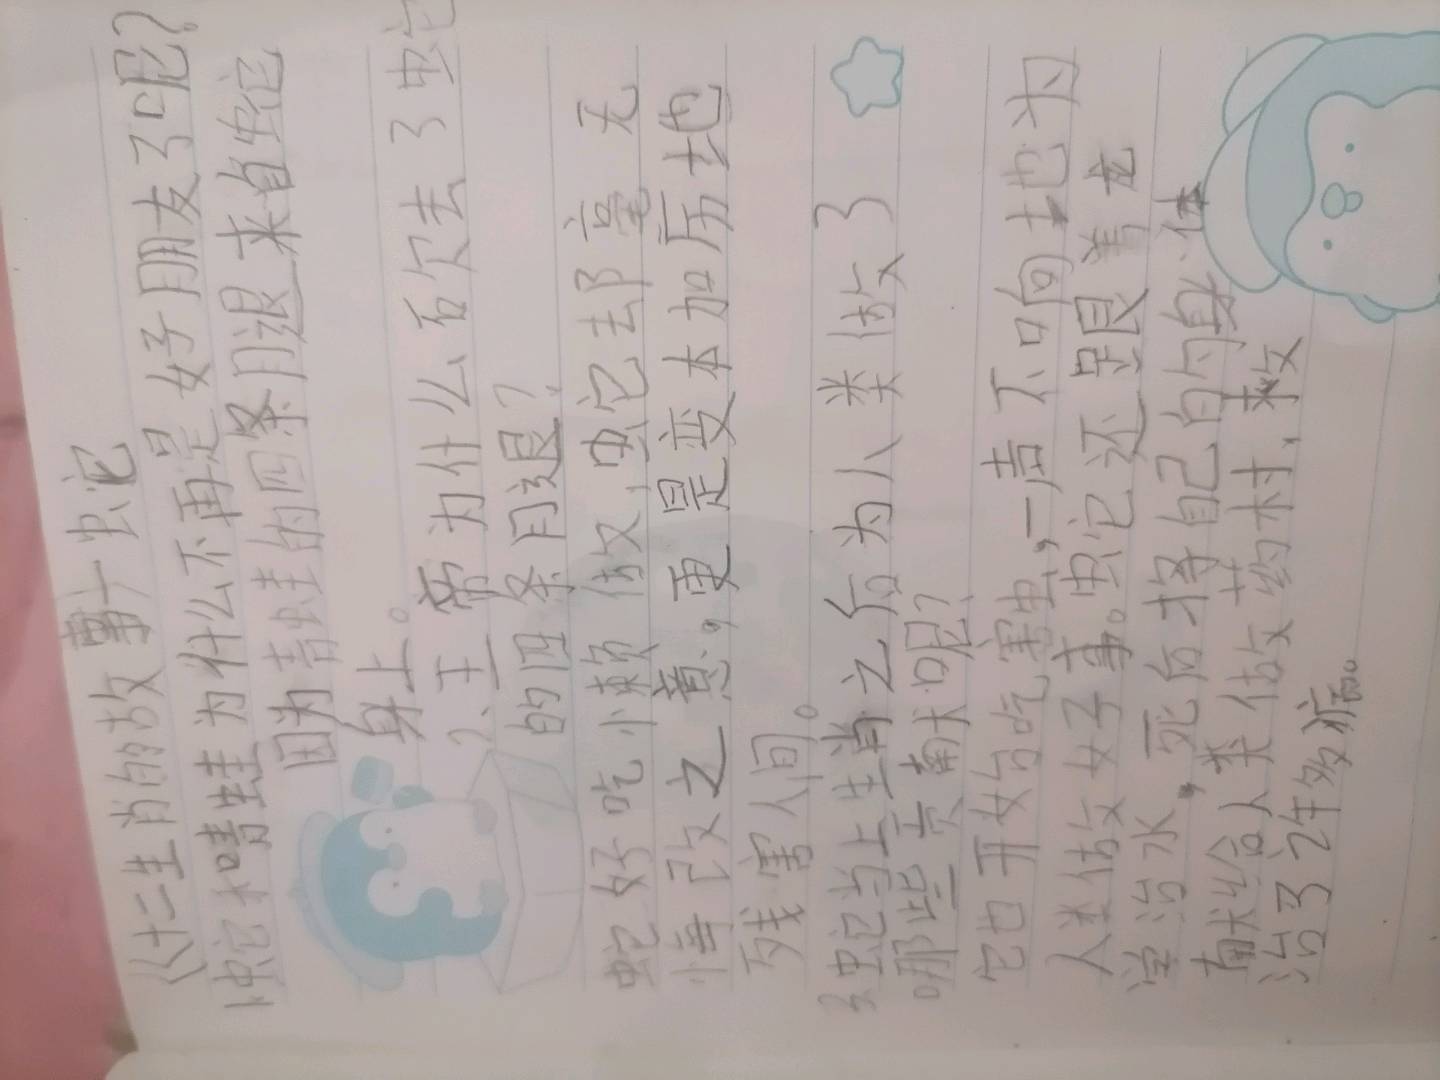 《十二生肖的故事一虫它
1.蛇和青蛙为什么不再是好子朋友了呢?
因为青蛙的四条月退来自蛇
身上。
2、王帝为什么石欠去了虫它
的四条月退?
蛇好吃小懒做,虫它去却毫无
悔改之意,更是变本加厉地
残害人间。
3虫它当上生肖之后为人类做了
哪些贡献呢?
它口开始吃害虫,一声不响地为
人类做好子事。虫它还跟着龙
学治水,死后将自己的身体
献给人类做药材,救
治了许多病。